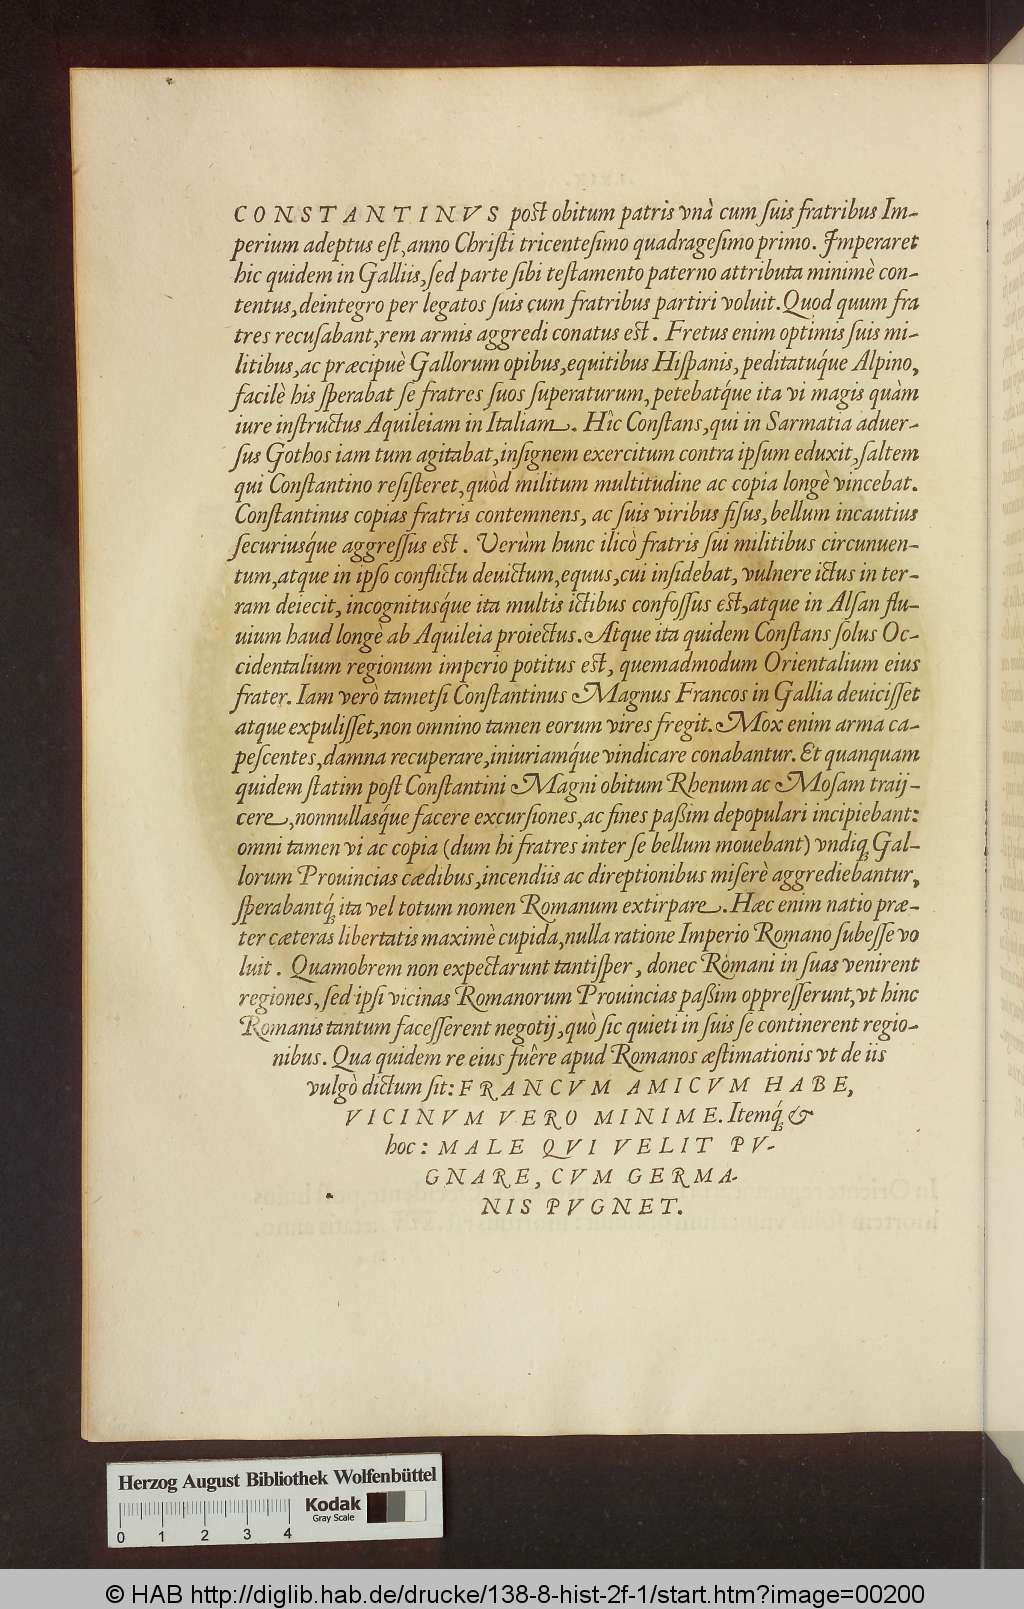 CONSTANTINVS poſt obitum patris vnà cum ſuis fratribus Im-
perium adeptus eſt, anno Chriſti tricenteſimo quadrageſimo primo. Imperaret
hic quidem in Galliis, ſed parte ſibi teſtamento paterno attributa minimè con-
tentus, deintegro per legatos ſuis cum fratribus partiri voluit. Quod quum fra
tres recuſabant, rem armis aggredi conatus eſt. Fretus enim optimis ſuis mi-
litibus, ac præcipuè Gallorum opibus, equitibus Hiſpanis, peditatuq́ue Alpino,
facilè his ſperabat ſe fratres ſuos ſuperaturum, petebatq́ue ita vi magis quàm
iure inſtructus Aquileiam in Italiam. Hîc Conſtans, qui in Sarmatia aduer-
ſus Gothos iam tum agitabat, inſignem exercitum contra ipſum eduxit, ſaltem
qui Conſtantino reſiſteret, quòd militum multitudine ac copia longè vincebat.
Conſtantinus copias fratris contemnens, ac ſuis viribus fiſus, bellum incautius
ſecuriusq́ue aggreſſus eſt. Verùm hunc ilicò fratris ſui militibus circunuen-
tum, atque in ipſo conflictu deuictum, equus, cui inſidebat, vulnere ictus in ter-
ram deiecit, incognitusq́ue ita multis ictibus confoſſus eſt, atque in Alſan flu-
uium haud longè ab Aquileia proiectus. Atque ita quidem Conſtans ſolus Oc-
cidentalium regionum imperio potitus eſt, quemadmodum Orientalium eius
frater. Iam verò tametſi Conſtantinus Magnus Francos in Gallia deuiciſſet
atque expuliſſet, non omnino tamen eorum vires fregit. Mox enim arma ca-
peſcentes, damna recuperare, iniuriamq́ue vindicare conabantur. Et quanquam
quidem ſtatim poſt Conſtantini Magni obitum Rhenum ac Moſam traij-
cere, nonnullasq́ue facere excurſiones, ac fines paßim depopulari incipiebant:
omni tamen vi ac copia (dum hi fratres inter ſe bellum mouebant) vndiq; Gal-
lorum Prouincias cædibus, incendiis ac direptionibus miſerè aggrediebantur,
ſperabantq́; ita vel totum nomen Romanum extirpare. Hæc enim natio præ-
ter cæteras libertatis maximè cupida, nulla ratione Imperio Romano ſubeſſe vo
luit. Quamobrem non expectarunt tantiſper, donec Romani in ſuas venirent
regiones, ſed ipſi vicinas Romanorum Prouincias paßim oppreſſerunt, vt hinc
Romanis tantum faceſſerent negotij, quò ſic quieti in ſuis ſe continerent regio-
nibus. Qua quidem re eius fuêre apud Romanos æſtimationis vt de iis
vulgò dictum ſit: FRANCVM AMICVM HABE,
VICINVM VERO MINIME. Itemq́; &
hoc: MALE QVI VELIT PV-
GNARE, CVM GERMA-
NIS PVGNET.
Herzog August Bibliothek Wolfenbüttel
Kodak
Gray Scale
0 1 2 3 4
© HAB http://diglib.hab.de/drucke/138-8-hist-2f-1/start.htm?image=00200